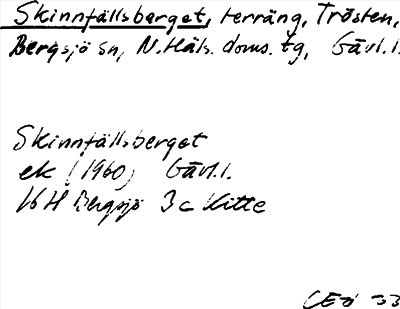 Skinnfällsberget, terräng, Trösten,
Bergsjö sn, N. Häls. doms. tg, Gävl. l.
Skinnfällsberget
ek (1960) Gävl. l.
16H Bergsjö 3c Kitte
CEö 33